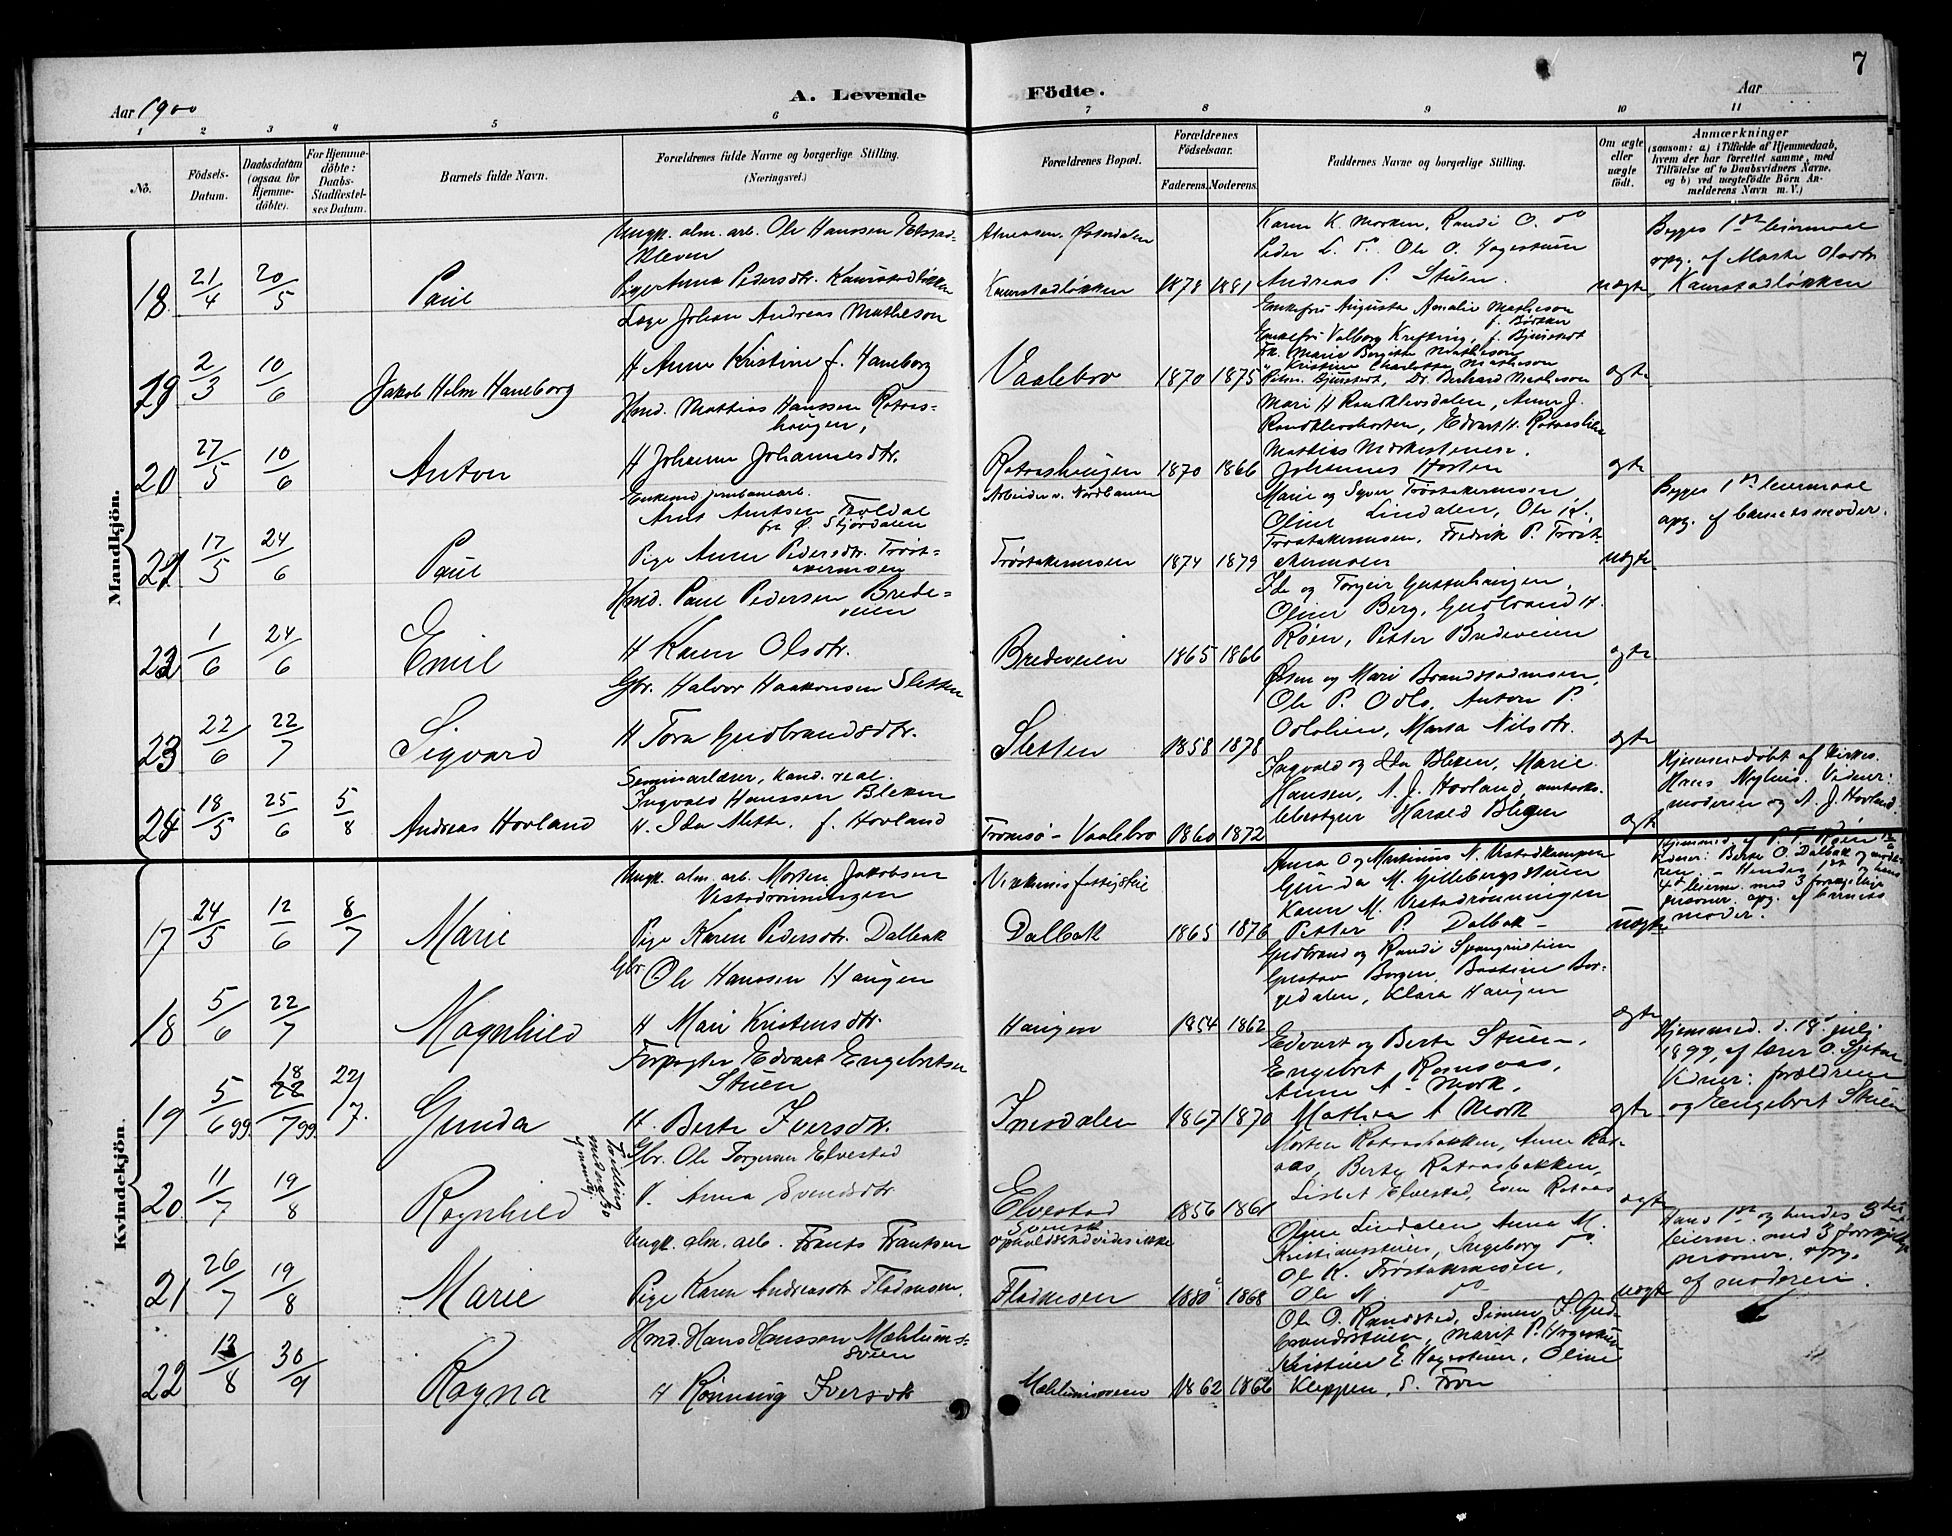 7
Aar 1900
A. Levende Födte.
Aar
1 2 3 4 5 6 7 8 9 10 11
No.
Födsels-Datum.
Daabsdatum (ogsaa för Hjemme-döbte).
For Hjemme-döbte: Daabs-Stadfæstel-ses Datum.
Barnets fulde Navn.
Forældrenes fulde Navne og borgerlige Stilling. (Næringsvei.)
Forældrenes Bopæl.
Forældrenes Födselsaar.
Faderens. Moderens.
Faddernes Navne og borgerlige Stilling.
Om ægte eller uægte födt.
Anmærkninger
(saasom: a) i Tilfælde af Hjemmedaab,
hvem der har forrettet samme, med
Tilföielse af to Daabsvidners Navne,
og b) ved uægtefödte Börn An-
melderens Navn m. V.)
Mandkjön.
18 21/4 20/5 Paul
Ungk. alm. arb. Ole Hanssen
Kleven
Pige Anna Pedersdtr. Kamstadløkken
Kamstadløkken 1878 1881
Karen K. Morken, Randi O. do
Peder L. do. Ole O. Hagestuen
Andreas P. Stuen.
uægte
Begges 1ste leiermaal
opg. af Marte Olsdtr.
Kamstadløkken
19 2/3 10/6 Jakob Holm Haneborg
Læge Johan Andreas Matheson
H Anna Kristine f. Haneborg
Vaalebro 1870 1875
Enkefru Augusta Amalie Matheson
Enkefru Valborg Krefting, f. Bjunstedt
Frk. Marie Birgitte Matheson
" Kristine Charlotte Matheson
Bjunstedt, Dr. Berhard Matheson
ægte
20 27/5 10/6 Anton
Hmd. Mattias Hanssen Rotaas-
haugen,
H Johanne Johannesdtr.
Rotaashaugen 1870 1866
Mari H Randklevsdalen, Anne J.
Randklevhorten, Edvart H. Rotaaslien
Mattias
Johannes Horten
ægte
21 17/5 24/6 Paul
Enkemd jernbanearb.
Arnt Arntsen Troldal
fra Ø. Stjørdalen
Pige Anne Pedersdtr. Trøst-
akermoen
Arbeider v. Nordbanen
Trøstakermoen 1874 1879
Marie og Syver Trøstakermoen,
Oline Lindalen, Ole K.
Trøstakermoen, Fredrik P. Trøst-
akermoen
uægte
Begges 1ste leiermaal
opg. af barnets moder.
22 1/6 24/6 Emil
Hmd. Paul Pedersen Brede-
veien
H Karen Olsdtr.
Bredeveien 1865 1866
Ida og Torgeir
Oline Berg, Gudbrand H.
Røen, Petter Bredeveien
ægte
23 22/6 22/7 Sigvard
Gbr. Halvor Haakonsen Sletten
H Tora Gudbrandsdtr.
Sletten 1858 1878
og Mari Brandstadmoen,
Ole P. Odlo, Anton P.
Odlolien, Marta Nilsdtr.
ægte
24 18/5 25/6 5/8 Andreas Hovland
Seminarlærer, kand. real.
Ingvald Hanssen Bleken
H. Ida Mette, f. Hovland
Tromsø - Vaalebro 1860 1872
Ingvald og Ida Bleken, Marie
Hansen, A. J. Hovland, amtsskole-
bestyrer Harald Blegen
ægte
Hjemmedøbt af kirkes.
Hans Nyhus. Vidner:
moderen og A. J. Hovland
Kvindekjön.
17 24/5 12/6 8/7 Marie
Ungk. alm. arb. Morten Jakobsen
Vestadrønningen
Pige Karen Pedersdtr. Dalbak
Dalbak 1865 1876
Anna og Martinus N. Vestadkampen
Gunda M. Gillebergstuen
Karen M. Vestadrønningen
Petter P. Dalbak -
uægte
Hjemmed. af P. T. Røen
Vidner: Berte O. Dalbak og mode-
ren. - Hendes 1ste og hans
4de leierm. med 3 forskjellige
personer. opg. af barnets
moder.
18 5/6 22/7 Magnhild
Gbr. Ole Hanssen Haugen
H Mari Kristensdtr.
Haugen 1854 1862
Gudbrand og Randi
Gustav Borgen, Bastine Bor-
gedalen, Klara Haugen
ægte
19 5/6 99 18 22/7 99 22/7. Gunda
Forpagter Edvart Engebretsen
Stuen
H. Berte Iversdtr.
Imsdalen 1867 1870
Edvart og Berte Stuen,
Engebret Ramsaas,
Anne A. Mork,
Mathea A Mork
ægte
Hjemmed. d. 18. juli
1899, af lærer O.
Vidner: forældrene
og Engebret Stuen
20 11/7 19/8 Ragnhild
Gbr. Ole Torgersen Elvestad
H. Anna Svendsdtr.
Elvestad 1856 1861
Morten Rotaasbakken, Anne Rot-
aas, Berte Rotaasbakken,
Lisbet Elvestad, Even Rotaas
ægte
21 26/7 19/8 Marie
Ungk. alm. arb. Frants Frantsen
Pige Karen Andreasdtr Fladmoen,
Svensk
opholdsted vides ikke
Fladmoen 1880 1868
Oline Lindalen, Anna M.
Kristiansstuen, Ingeborg do
Ole K. Trøstakermoen,
Ole M. do
uægte
Hans 1ste og hendes 3die
leierm. med 3 forskjellige
personer, opg.
af moderen.
22 13/8 30/9 Ragna
Hmd. Hans Hanssen Mæhlum-
sveen
H Rønnaug Iversdtr
Mæhlumsveen 1862 1866
Ole O. Randstad, Simen J. Gud-
brandsstuen, Marit P. Hagestuen
Kristian E. Hagestuen, Oline
Kleppen, S. Fron